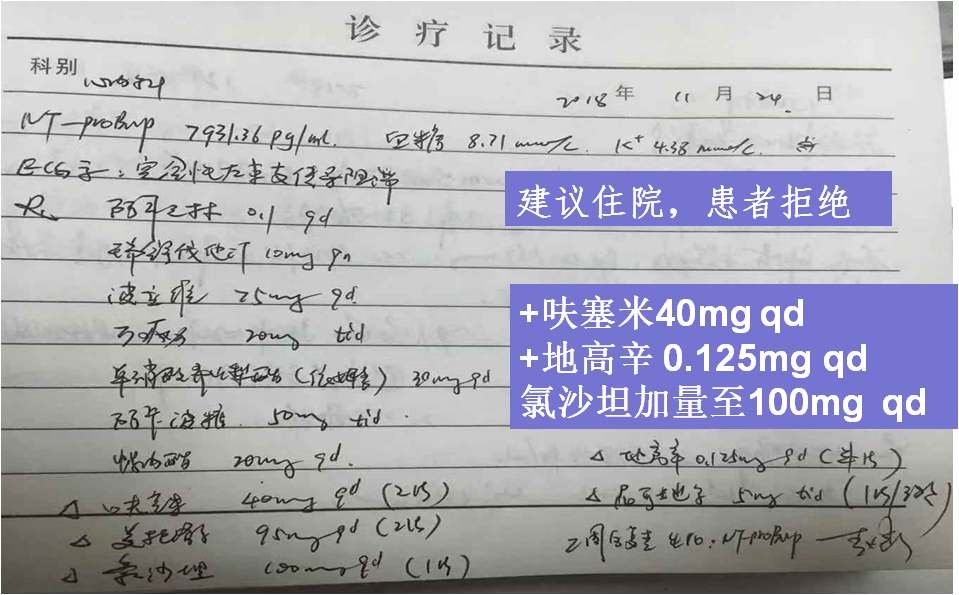 诊疗记录
科别 心内科 2018年 11月 24日
NT-proBnp 7931.36 pg/mL. 血糖 8.71 mmol/L. K⁺ 4.38 mmol/L.
ECG示：完全性左束支传导阻滞
建议住院，患者拒绝
R: 阿司匹林 0.1 qd
瑞舒伐他汀 10mg qn
波立维 75mg qd.
+呋塞米40mg qd
+地高辛 0.125mg qd
氯沙坦加量至100mg qd
20mg tid
单硝酸异山梨酯 30mg qd
阿卡波糖. 50mg tid.
螺内酯 20mg qd.
△ 地高辛 0.125mg qd (半片)
△ 呋塞米 40mg qd (2片)
△ 5mg tid (1片/次)
△ 美托洛尔 95mg qd (2片)
2周后复查 NT-proBnp
△ 氯沙坦 100mg qd (1片)